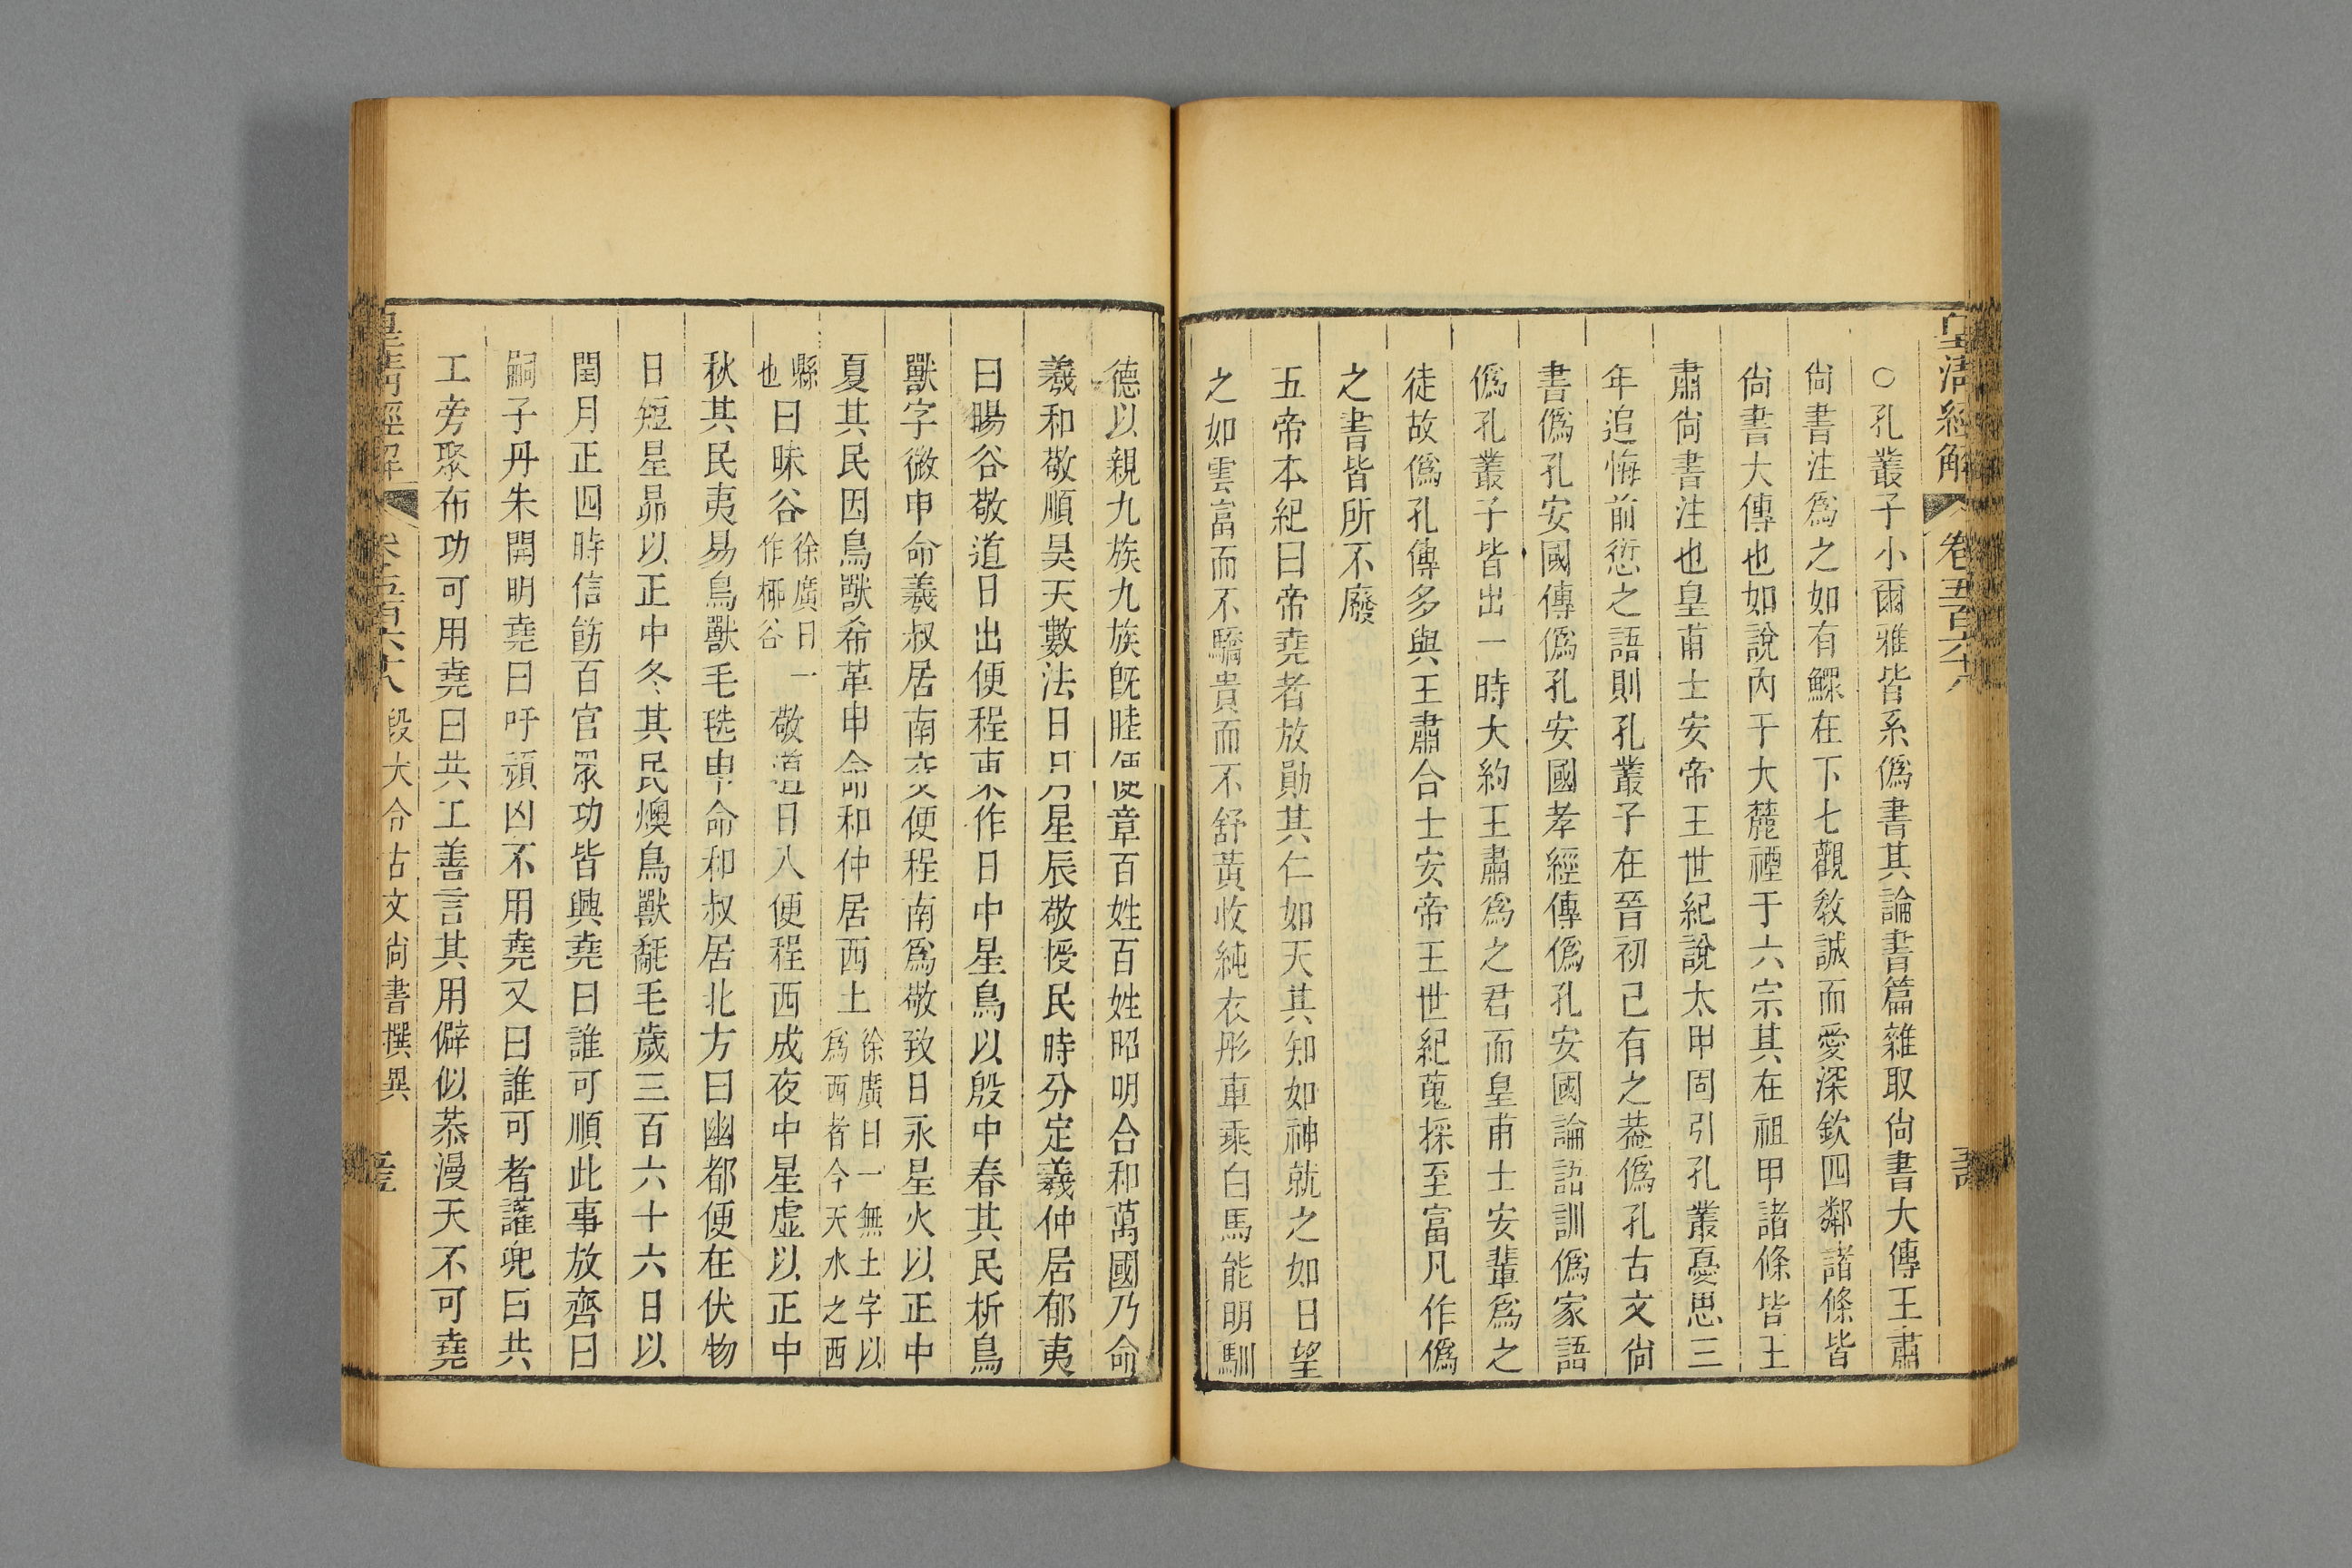 皇清經解 卷五百六十八
○孔叢子小爾雅皆系僞書其論書篇雜取尙書大傳王肅
尙書注爲之如有鰥在下七觀敎誠而愛深欽四鄰諸條皆
尙書大傳也如說內于大麓禋于六宗其在祖甲諸條皆王
肅尙書注也皇甫士安帝王世紀說太甲固引孔叢憂思三
年追悔前愆之語則孔叢子在晉初已有之葢僞孔古文尙
書僞孔安國傳僞孔安國孝經傳僞孔安國論語訓僞家語
僞孔叢子皆出一時大約王肅爲之君而皇甫士安輩爲之
徒故僞孔傳多與王肅合士安帝王世紀蒐採至富凡作僞
之書皆所不廢
五帝本紀曰帝堯者放勛其仁如天其知如神就之如日望
之如雲富而不驕貴而不舒黃收純衣彤車乘白馬能明馴
德以親九族九族旣睦便章百姓百姓昭明合和萬國乃命
羲和敬順昊天數法日月星辰敬授民時分定羲仲居郁夷
曰暘谷敬道日出便程東作日中星鳥以殷中春其民析鳥
獸字微申命羲叔居南交便程南爲敬致日永星火以正中
夏其民因鳥獸希革申命和仲居西土徐廣曰一無土字以
爲西者今天水之西
縣
也曰昧谷徐廣曰一
作柳谷敬道日入便程西成夜中星虛以正中
秋其民夷易鳥獸毛毨申命和叔居北方曰幽都便在伏物
日短星昴以正中冬其民燠鳥獸氄毛歲三百六十六日以
閏月正四時信飭百官眾功皆興堯曰誰可順此事放齊曰
嗣子丹朱開明堯曰吁頑凶不用堯又曰誰可者讙兜曰共
工旁聚布功可用堯曰共工善言其用僻似恭漫天不可堯
皇淸經解 卷五百六十八 段大令古文尙書撰異